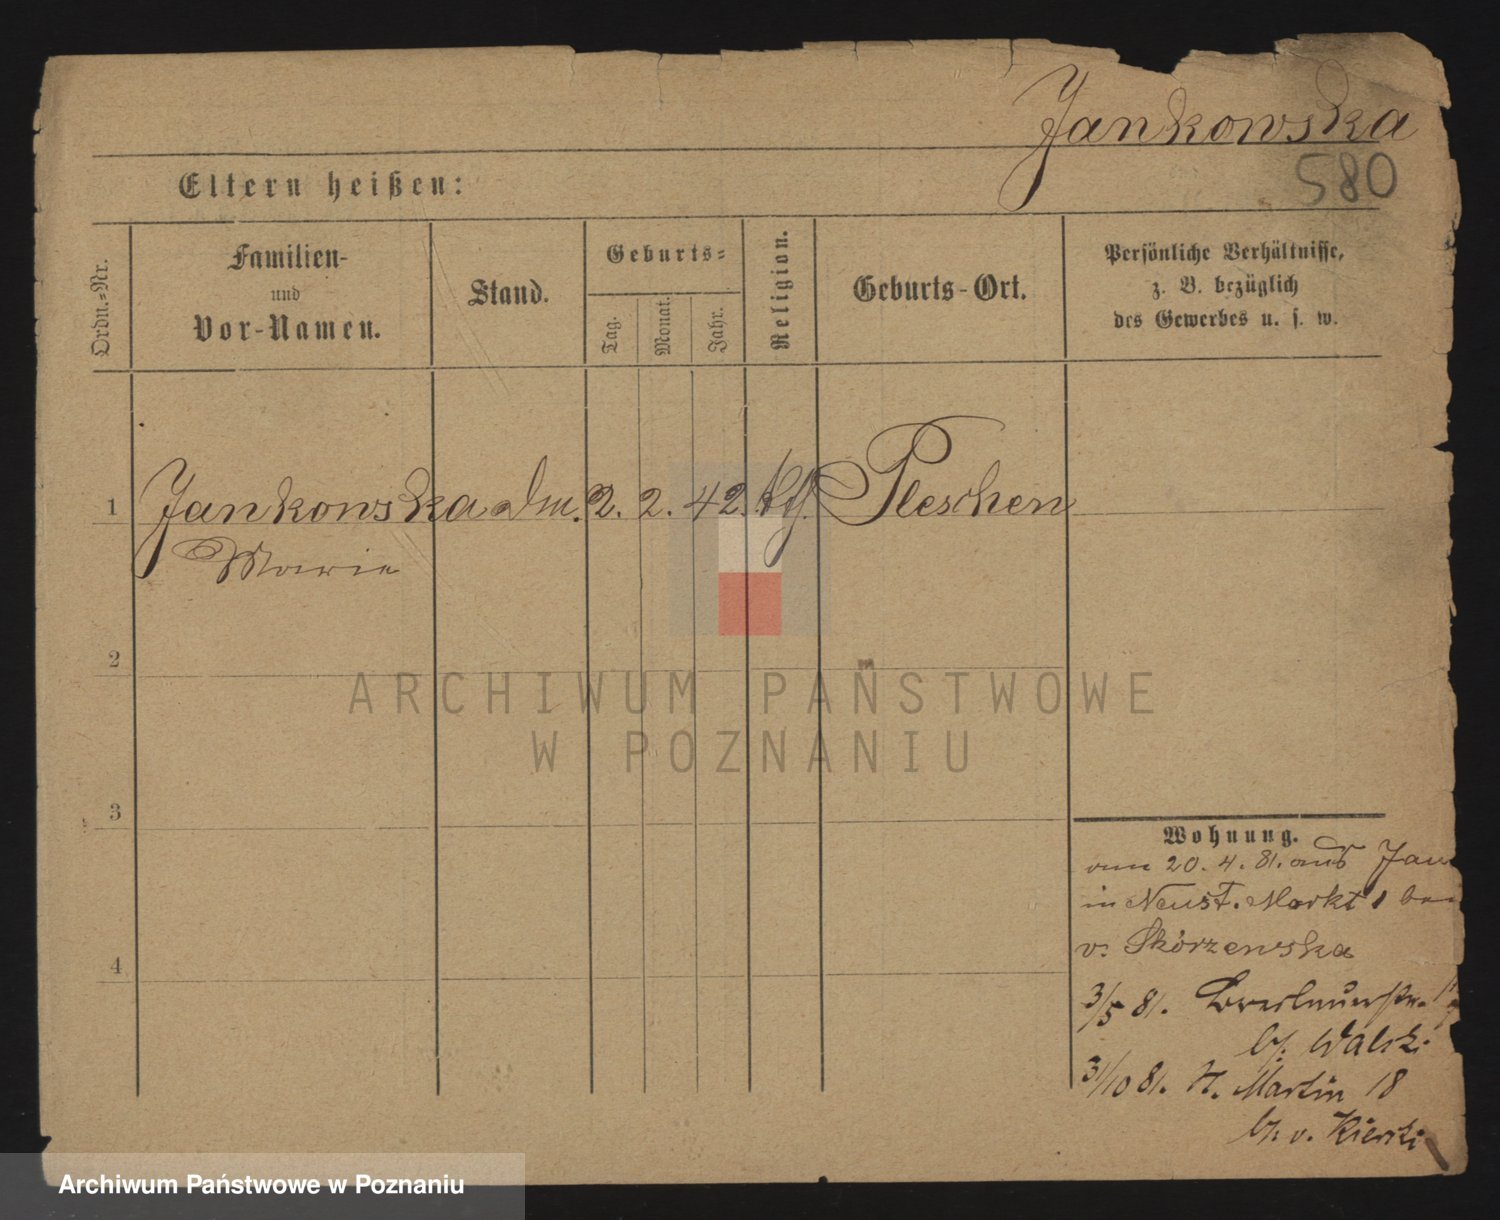 Jankowska
580
Eltern heißen:
Ordn.-Nr.
Familien-
und
Vor-Namen.
Stand.
Geburts-
Tag.
Monat.
Jahr.
Religion.
Geburts-Ort.
Persönliche Verhältnisse,
z. B. bezüglich
des Gewerbes u. s. w.
1 Jankowska 2. 2. 42. kth. Pleschen
Marie
2
3
4
ARCHIWUM PAŃSTWOWE
W POZNANIU
Wohnung.
20. 4. 81. aus
in Neust. Markt 1
v. Skórzewska
3/5 81. Breslauerstr.
b/. Walski
31/10 81. St. Martin 18
b/. v. Kierski
Archiwum Państwowe w Poznaniu